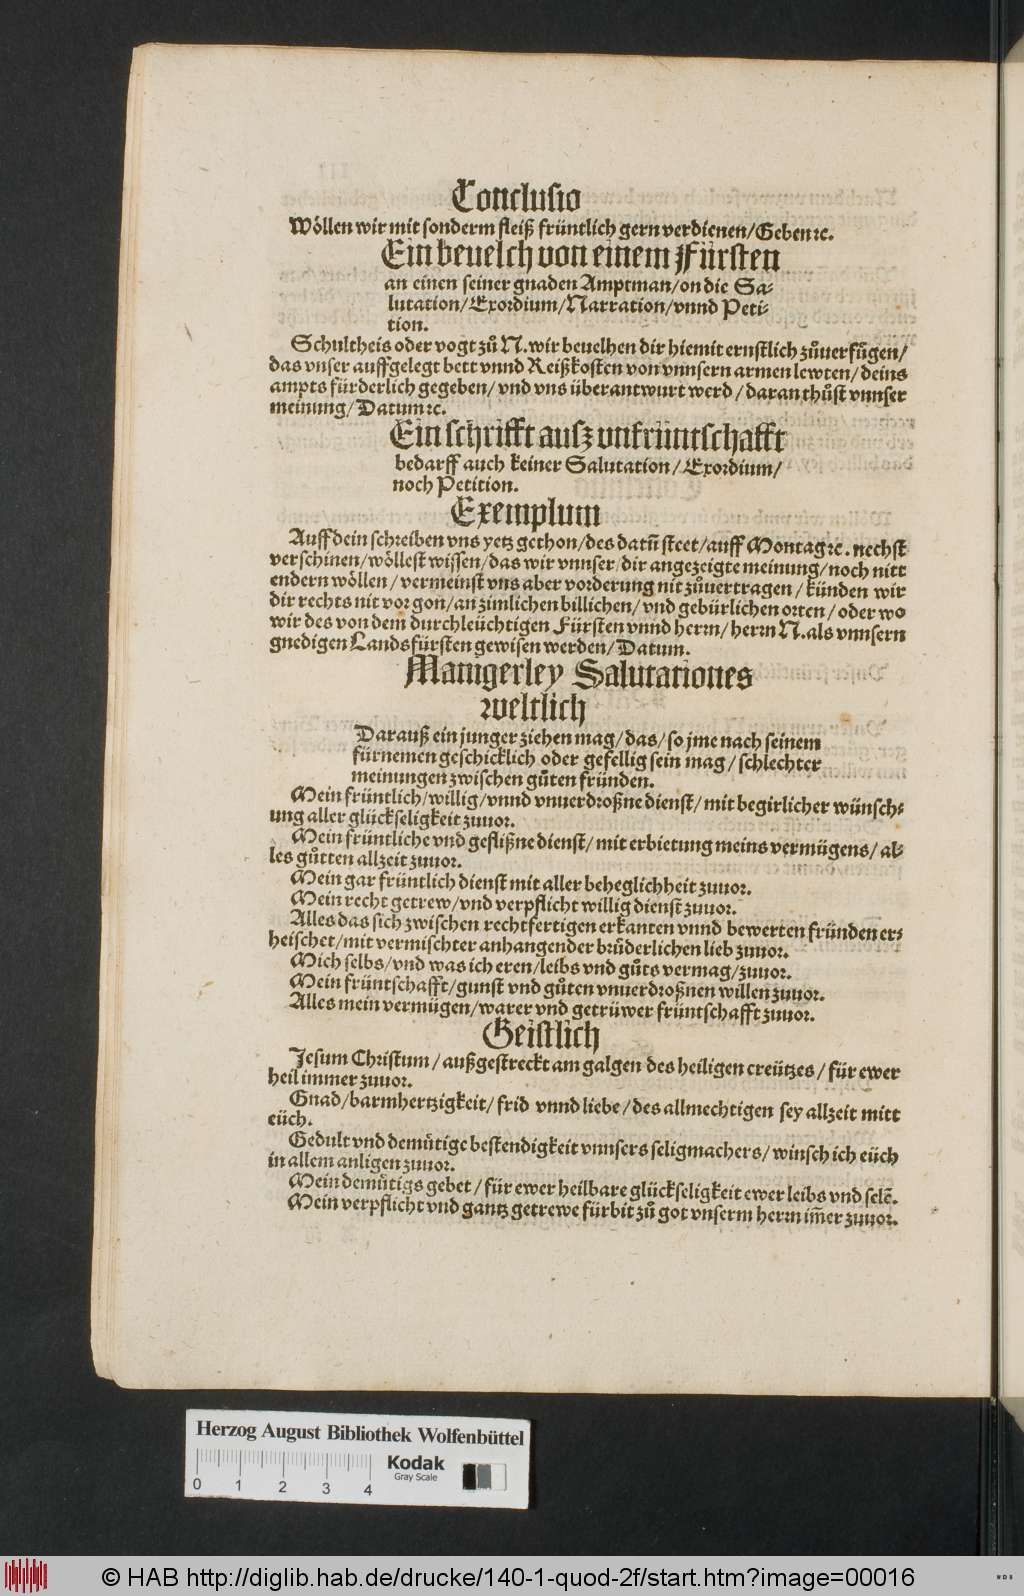 Conclusio
Wöllen wir mit sonderm fleiß früntlich gern verdienen/Geben ꝛc.
Ein beuelch von einem Fürsten
an einen seiner gnaden Amptman/on die Sa⸗
lutation/Exordium/Narration/vnnd Peti⸗
tion.
Schultheis oder vogt zuͦ N. wir beuelhen dir hiemit ernstlich zuͦuerfuͤgen/
das vnser auffgelegt bett vnnd Reißkosten von vnnsern armen lewten/deins
ampts fürderlich gegeben/vnd vns überantwurt werd/daran thuͦst vnnser
meinung/Datum ꝛc.
Ein schrifft ausz vnfrüntschafft
bedarff auch keiner Salutation/Exordium/
noch Petition.
Exemplum
Auff dein schreiben vns yetz gethon/des datū steet/auff Montag ꝛc. nechst
verschinen/wöllest wissen/das wir vnnser/dir angezeigte meinung/noch nitt
endern wöllen/vermeinst vns aber vorderung nit zuͦuertragen/künden wir
dir rechts nit vor gon/an zimlichen billichen/vnd gebürlichen orten/oder wo
wir des von dem durchleüchtigen Fürsten vnnd herrn/herrn N. als vnnsern
gnedigen Landsfürsten gewisen werden/Datum.
Manigerley Salutationes
weltlich
Darauß ein junger ziehen mag/das/so jme nach seinem
fürnemen geschicklich oder gefellig sein mag/schlechter
meinungen zwischen guͦten fründen.
Mein früntlich/willig/vnnd vnuerdroßne dienst/mit begirlicher wünsch⸗
ung aller glückseligkeit zuuor.
Mein früntliche vnd geflißne dienst/mit erbietung meins vermügens/al⸗
les guͦtten allzeit zuuor.
Mein gar früntlich dienst mit aller beheglichheit zuuor.
Mein recht getrew/vnd verpflicht willig dienst zuuor.
Alles das sich zwischen rechtfertigen erkanten vnnd bewerten fründen er⸗
heischet/mit vermischter anhangender bruͤderlichen lieb zuuor.
Mich selbs/vnd was ich eren/leibs vnd guͦts vermag/zuuor.
Mein früntschafft/gunst vnd guͦten vnuerdroßnen willen zuuor.
Alles mein vermügen/warer vnd getrüwer früntschafft zuuor.
Geistlich
Jesum Christum/außgestreckt am galgen des heiligen creützes/für ewer
heil immer zuuor.
Gnad/barmhertzigkeit/frid vnnd liebe/des allmechtigen sey allzeit mitt
eüch.
Gedult vnd demuͤtige bestendigkeit vnnsers seligmachers/winsch ich eüch
in allem anligen zuuor.
Mein demuͤtigs gebet/für ewer heilbare glückseligkeit ewer leibs vnd selē.
Mein verpflicht vnd gantz getrewe fürbit zuͦ got vnserm herrn im̄er zuuor.
Herzog August Bibliothek Wolfenbüttel
Kodak
Gray Scale
0 1 2 3 4
© HAB http://diglib.hab.de/drucke/140-1-quod-2f/start.htm?image=00016